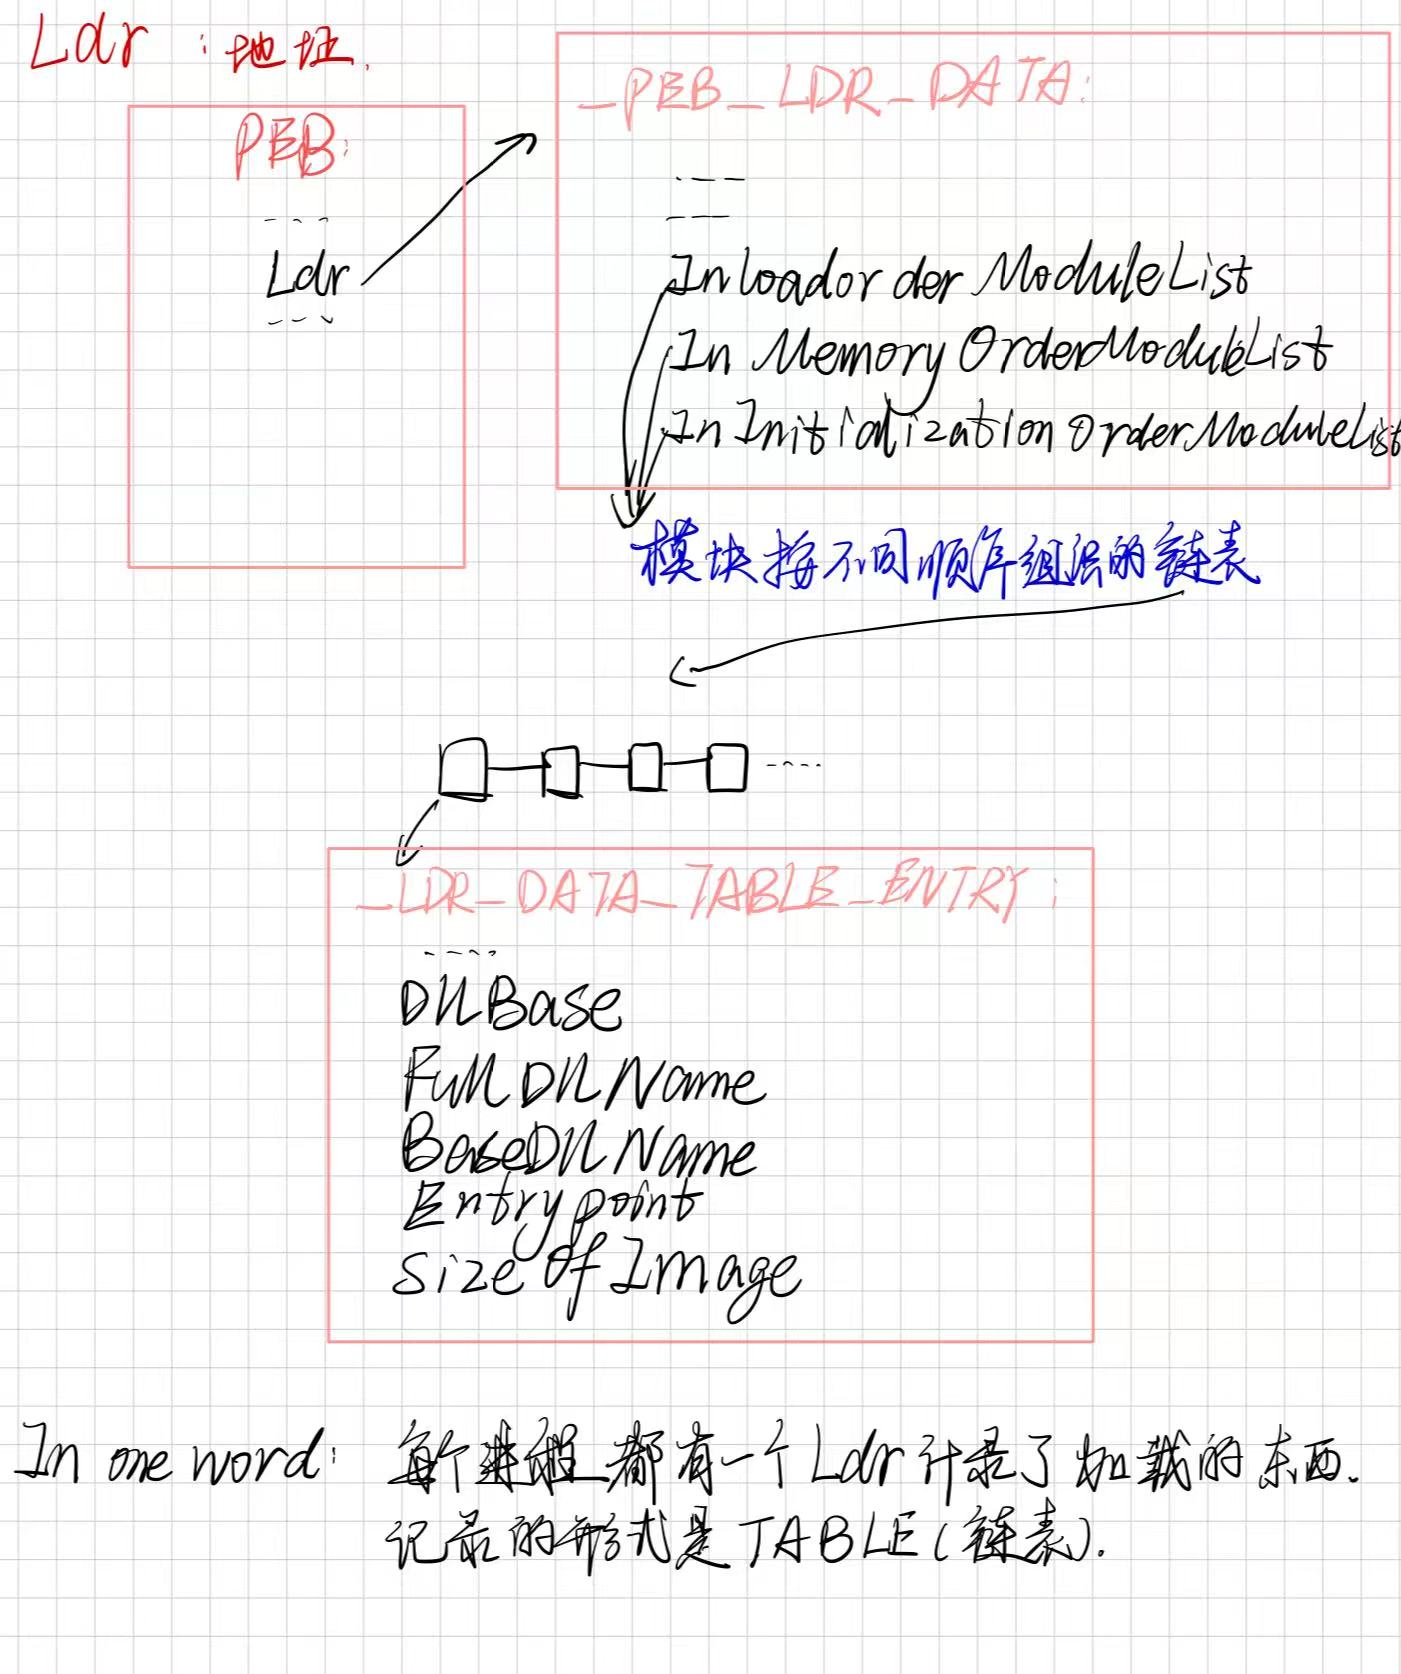 Ldr : 地址.
PEB:
Ldr
_PEB_LDR_DATA:
InloadorderModuleList
In MemoryOrderModuleList
In InitializationOrderModuleList
模块按不同顺序组织的链表
_LDR_DATA_TABLE_ENTRY:
DllBase
FullDllName
BaseDllName
Entrypoint
Size of Image
In one word: 每个进程都有一个Ldr计录了加载的东西.
记录的形式是TABLE(链表).